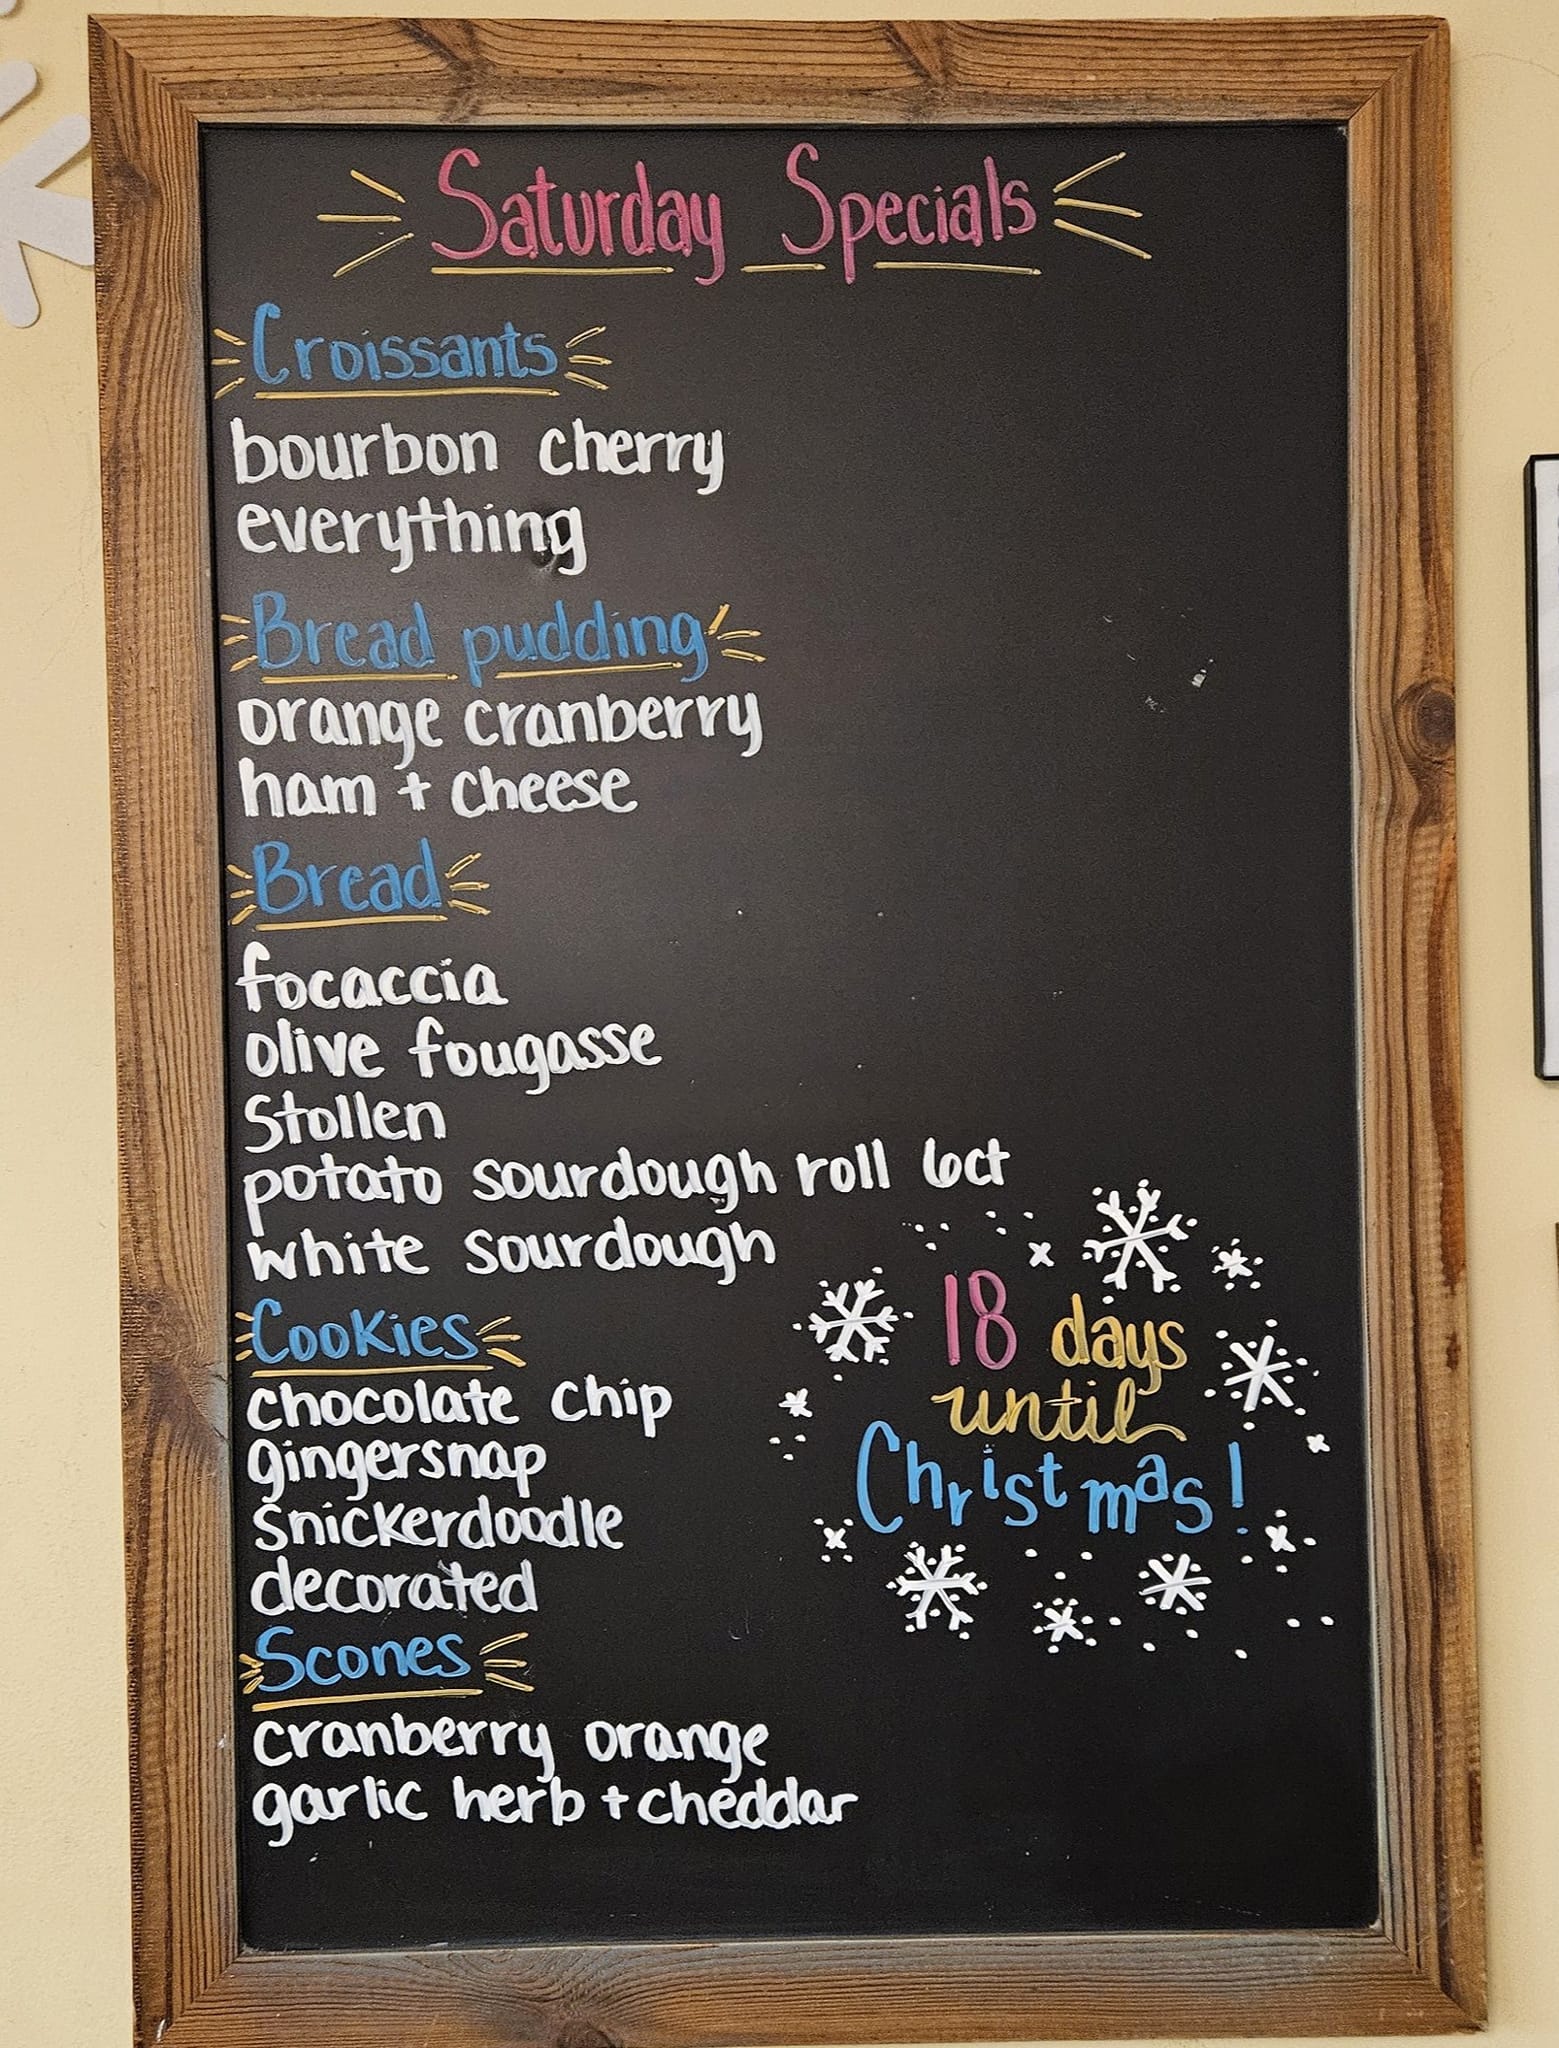 Saturday Specials
Croissants
bourbon cherry
everything
Bread pudding
orange cranberry
ham + cheese
Bread
focaccia
olive fougasse
Stollen
potato sourdough roll 6ct
white sourdough
Cookies
chocolate chip
gingersnap
snickerdoodle
decorated
Scones
cranberry orange
garlic herb + cheddar
18 days
until
Christmas!